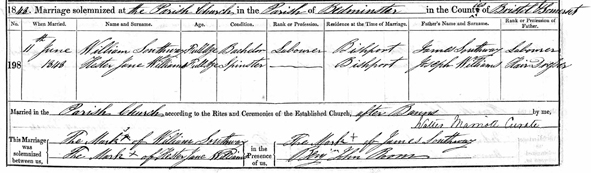 1848. Marriage solemnized at the Parish Church in the Parish of Bedminster in the County of Bristol Somerset
When Married. Name and Surname. Age. Condition. Rank or Profession. Residence at the Time of Marriage. Father's Name and Surname. Rank or Profession of Father.
198
11th June William Southway Full Age Bachelor Labourer Bishport James Southway Labourer
1848 Hester Jane Williams Full Age Spinster Bishport Joseph Williams
Married in the Parish Church according to the Rites and Ceremonies of the Established Church, after Banns by me,
Walter Marriott Curate
This Marriage was solemnized between us,
The Mark + of William Southway
The Mark + of Hester Jane Williams
in the Presence of us,
The Mark + of James Southway
John